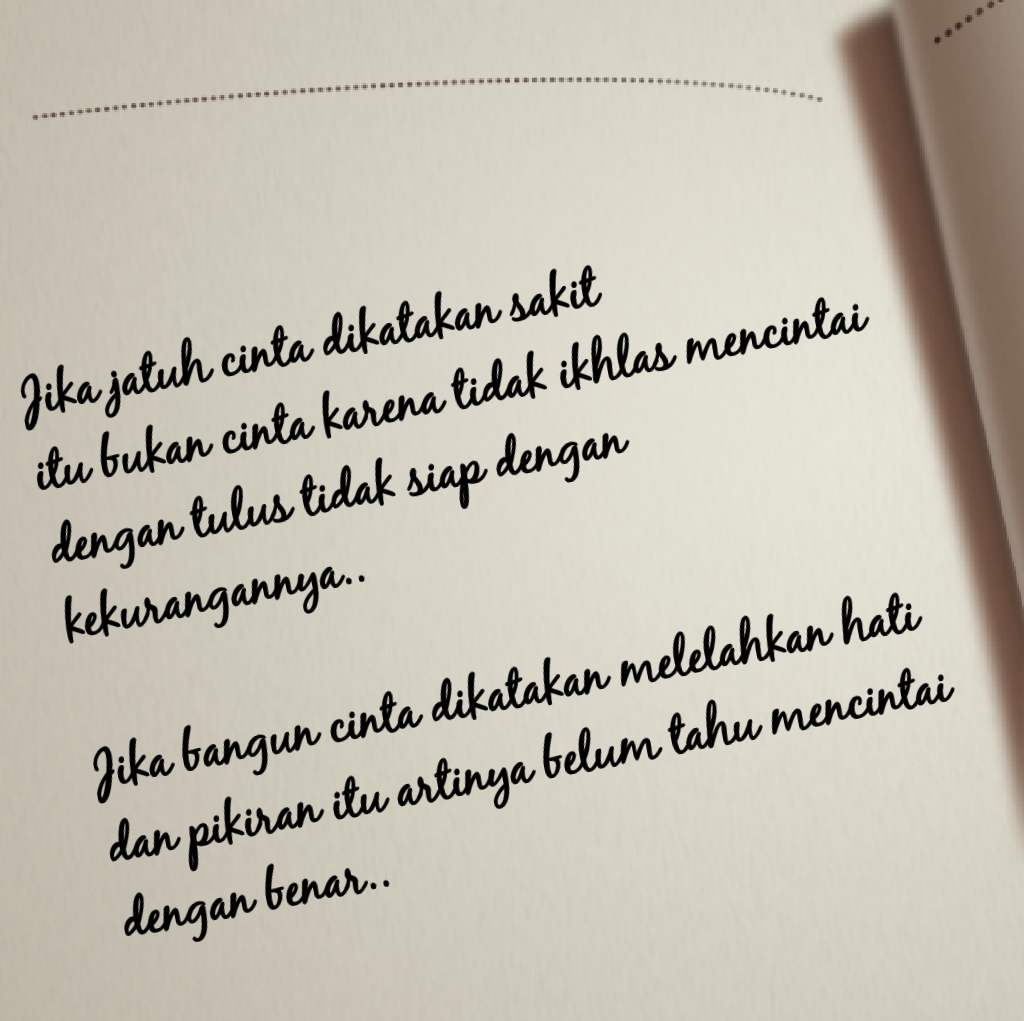 Jika jatuh cinta dikatakan sakit
itu bukan cinta karena tidak ikhlas mencintai
dengan tulus tidak siap dengan
kekurangannya..
Jika bangun cinta dikatakan melelahkan hati
dan pikiran itu artinya belum tahu mencintai
dengan benar..